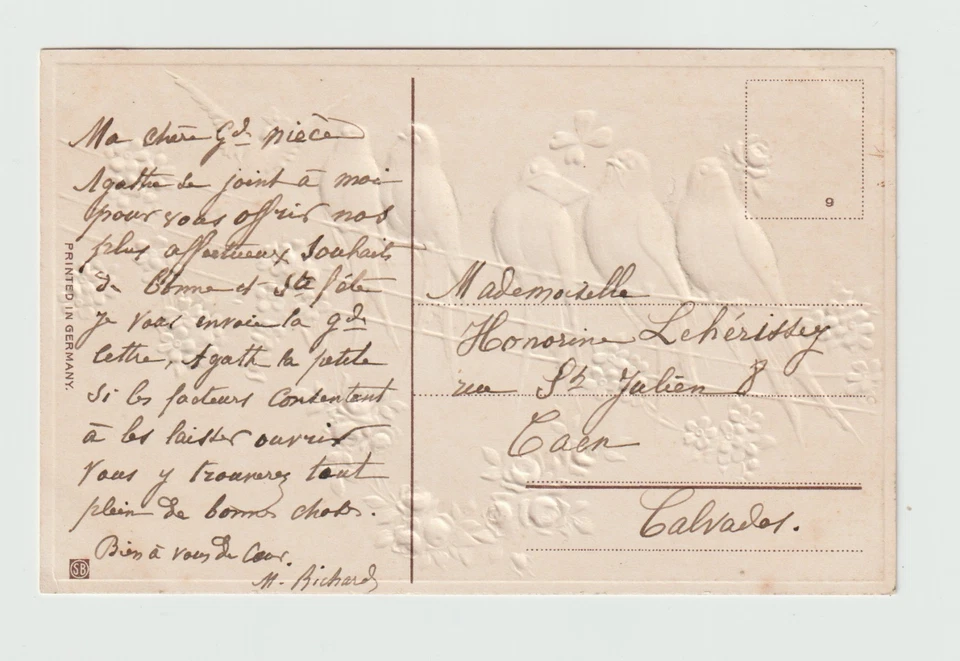 Ma chère Gde nièce
Agathe se joint à moi
pour vous offrir nos
plus affectueux souhaits
de bonne et Ste fête
je vous envoie la gde
lettre, Agath la petite
si les facteurs consentent
à les laisser ouvrir
vous y trouverez tout
plein de bonnes choses.
Bien à vous de Cœur.
M. Richard
PRINTED IN GERMANY.
SB
9
Mademoiselle
Honorine Lehérissey
rue St Julien 8
Caen
Calvados.